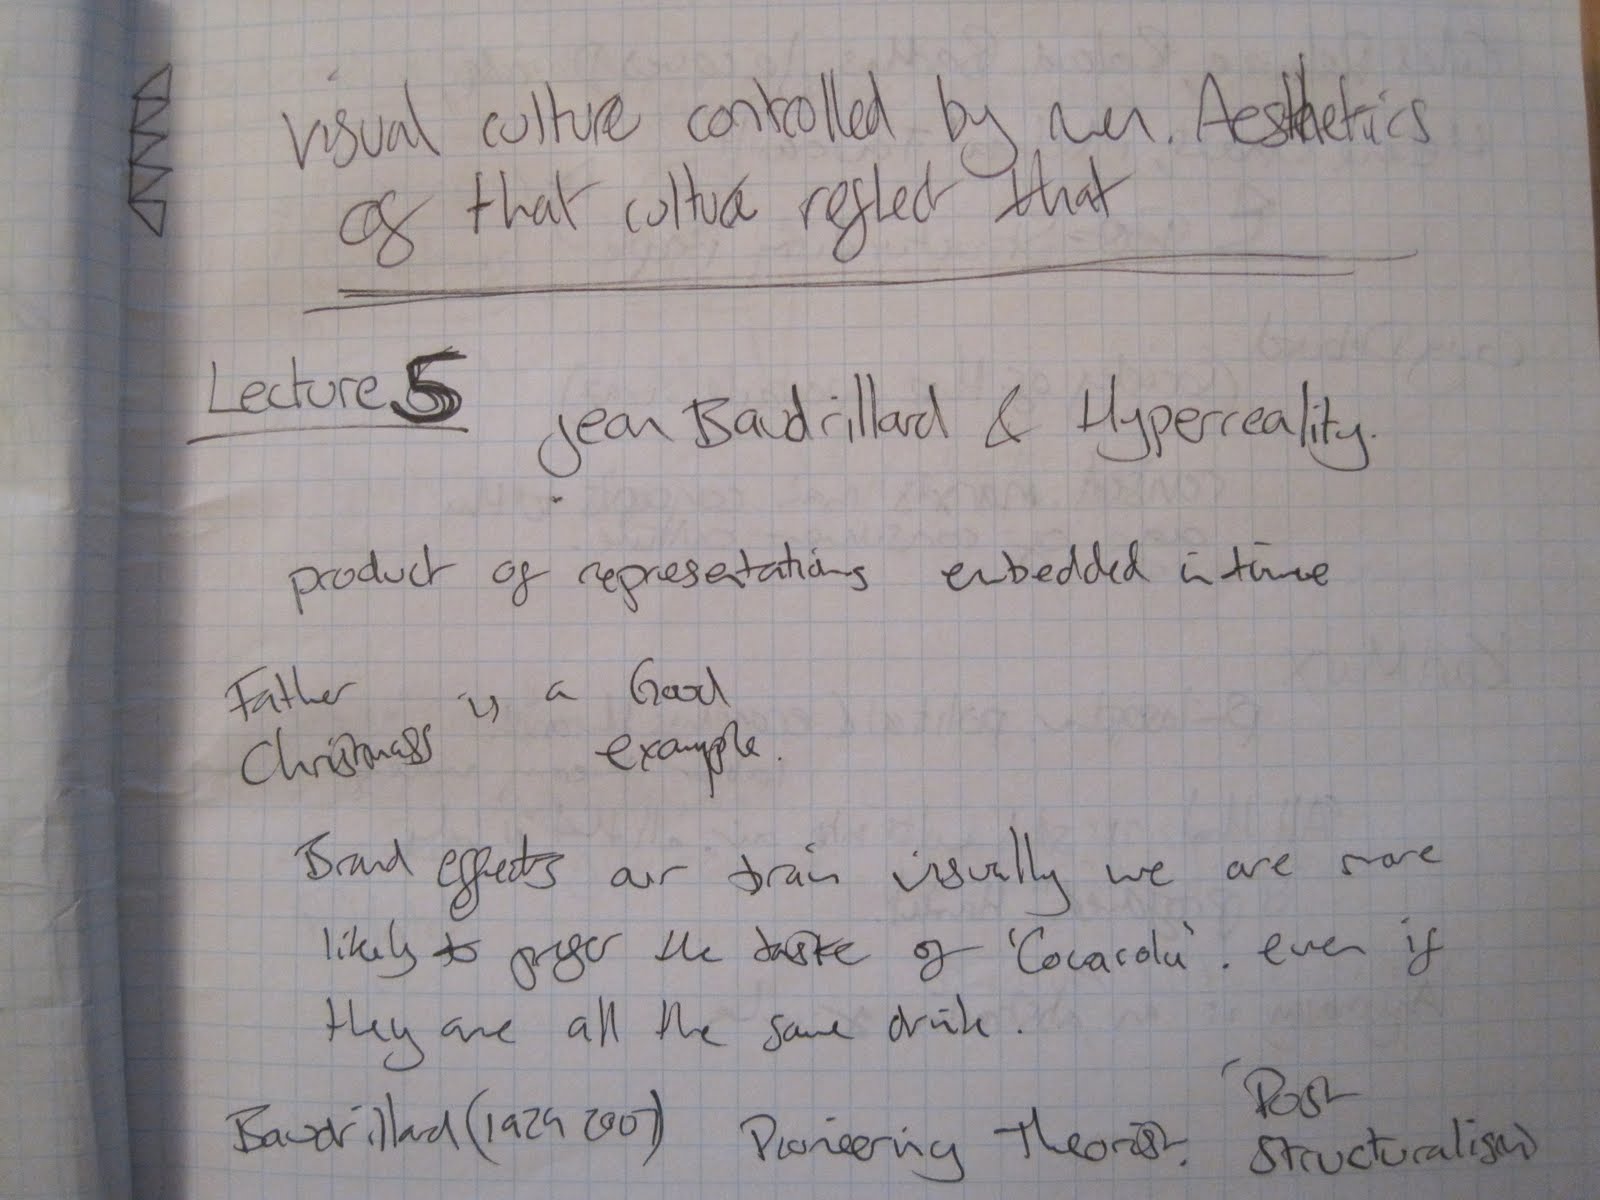 visual culture controlled by men. Aesthetics
of that culture reflect that
Lecture 5
Jean Baudrillard & Hyperreality.
product of representations embedded in time
Father is a Good
Christmass example.
Brand effects our brain visually we are more
likely to prefer the taste of 'Cocacola'. even if
they are all the same drink.
Baudrillard (1929 2007) Pioneering Theorist. 'Post
Structuralism